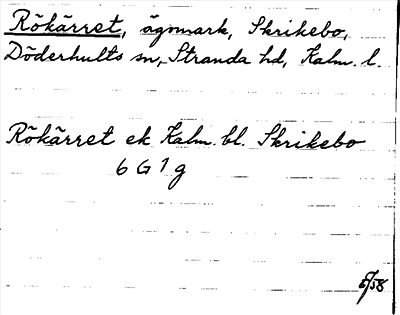 Rökärret, ägomark, Skrikebo,
Döderhults sn, Stranda hd, Kalm. l.
Rökärret ek Kalm. bl. Skrikebo
6 G 1 g
5/58